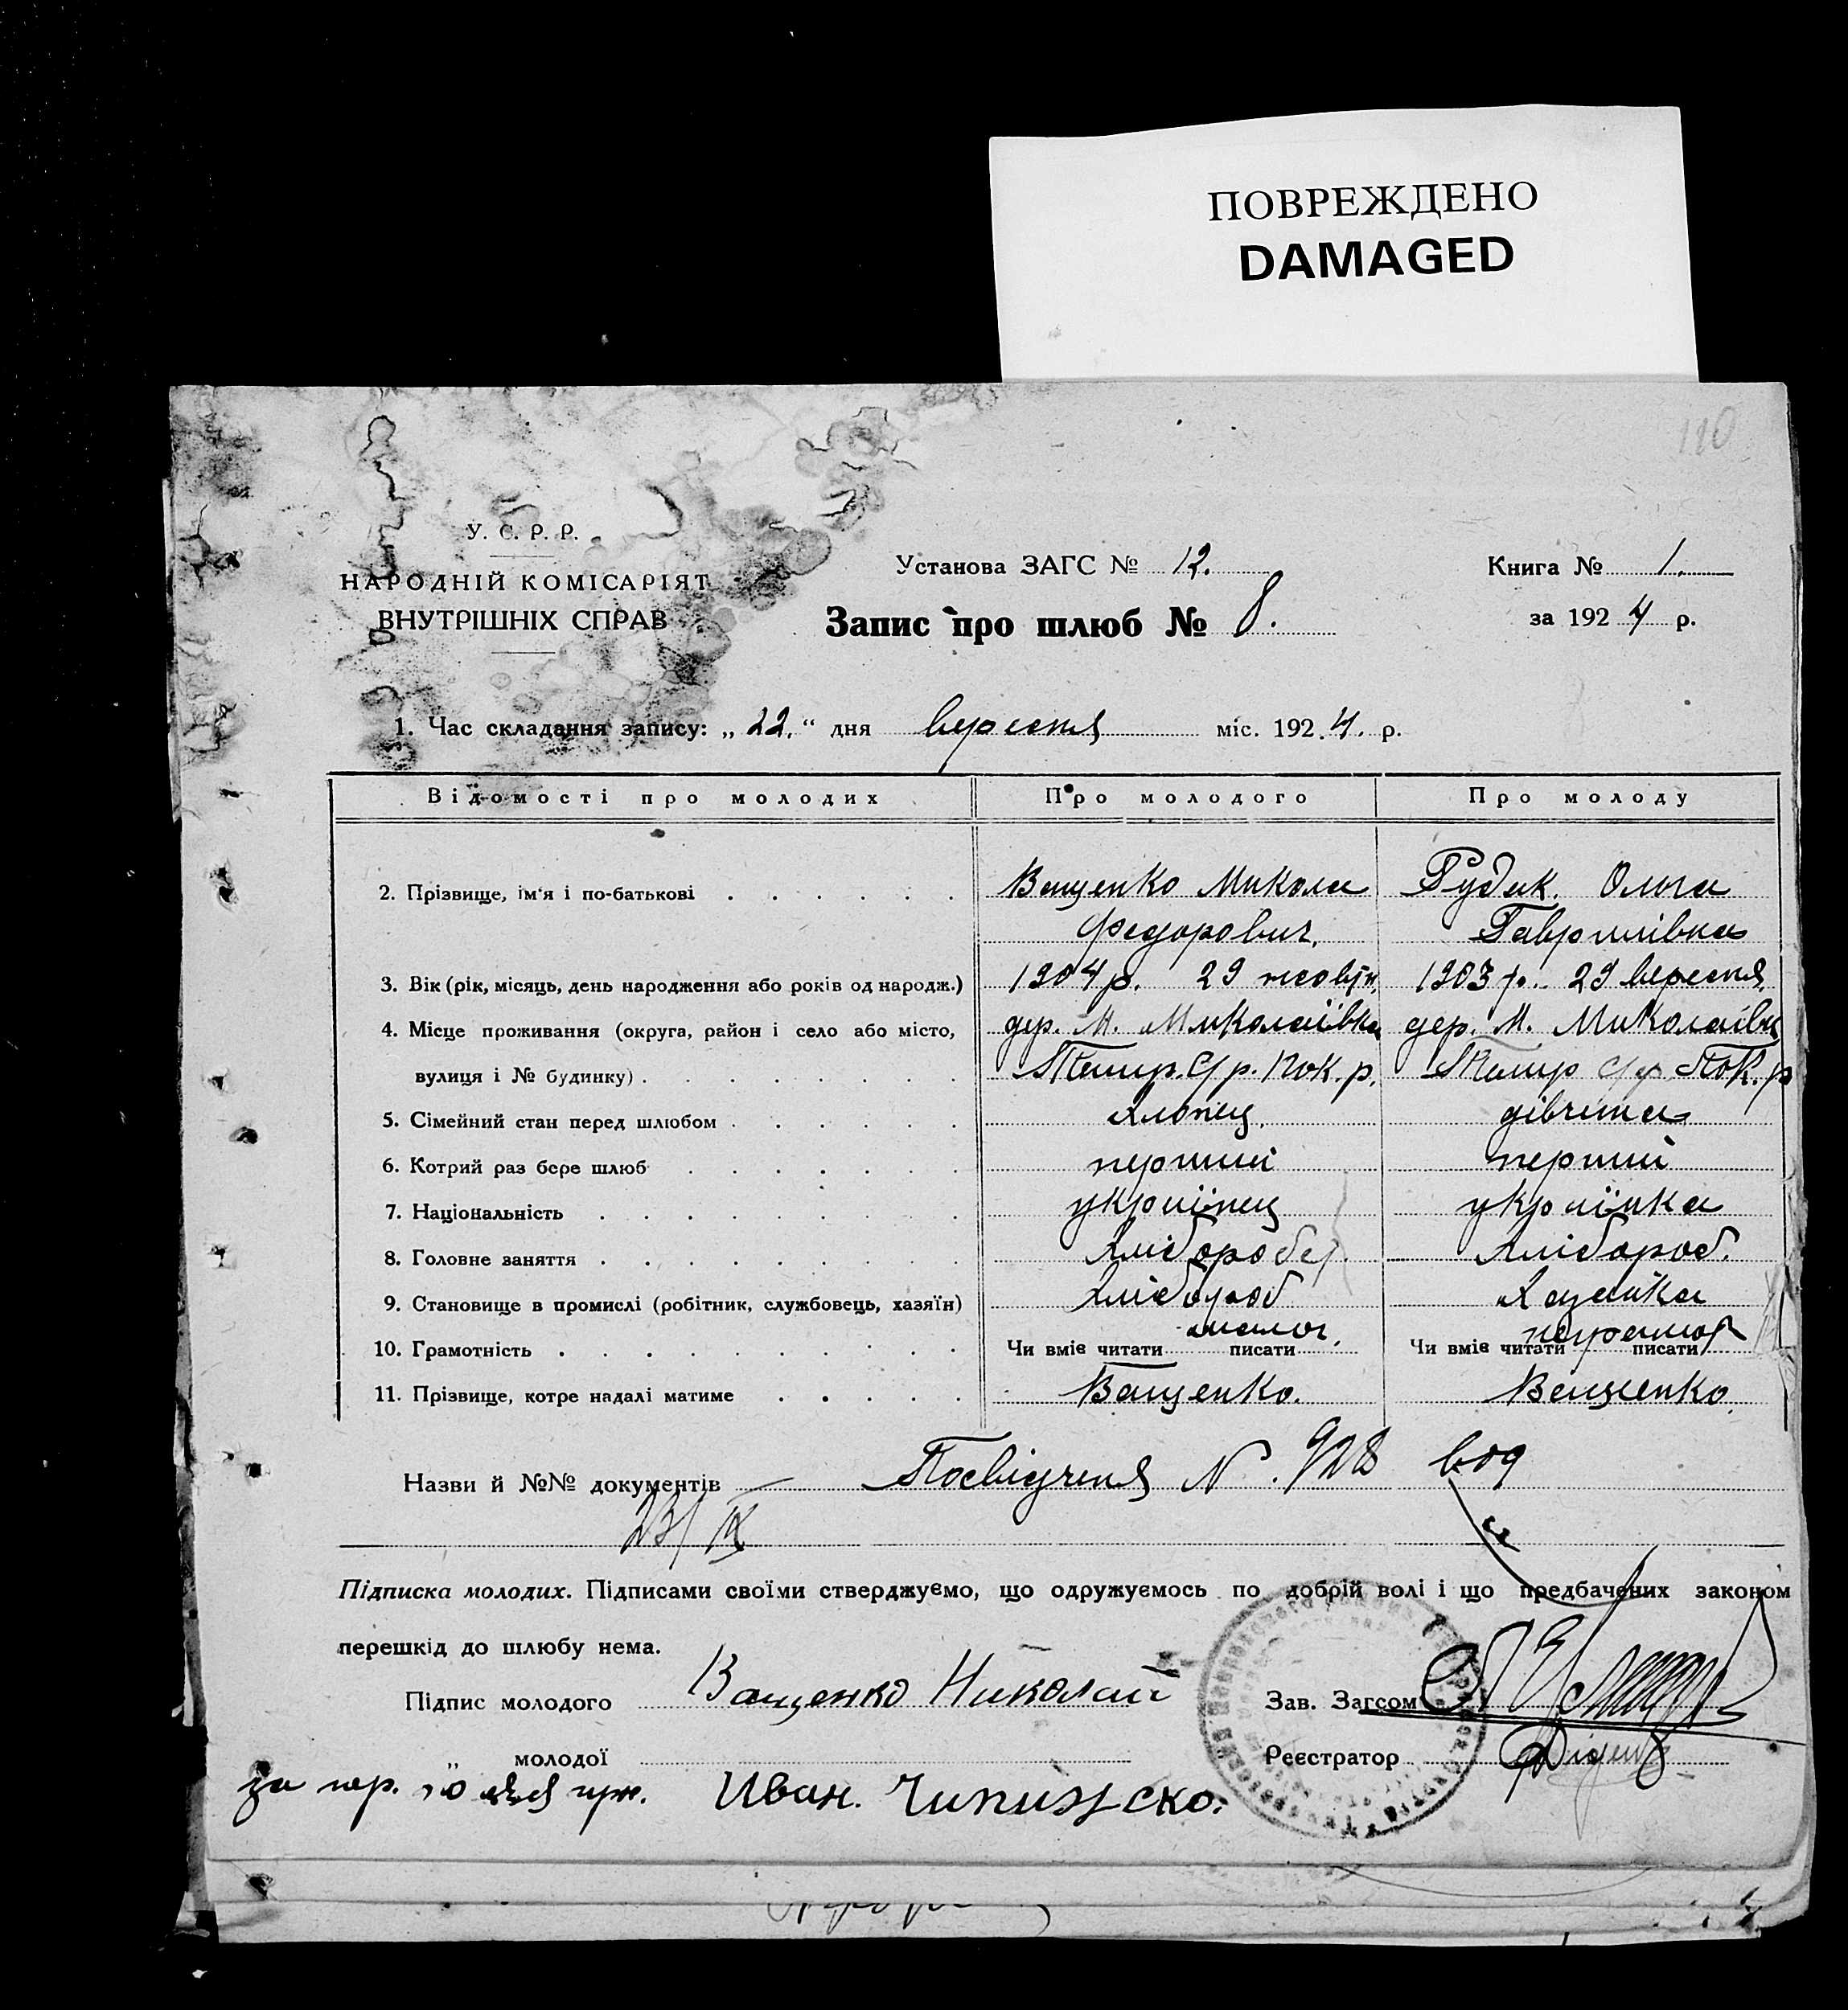 ПОВРЕЖДЕНО
DAMAGED
110
У. С. Р. Р.
НАРОДНІЙ КОМІСАРІЯТ
ВНУТРІШНІХ СПРАВ
Установа ЗАГС № 12.
Книга № 1.
Запис про шлюб № 8.
за 1924 р.
1. Час складання запису: „22.“ дня вересня міс. 1924. р.
Відомості про молодих Про молодого Про молоду
2. Прізвище, ім'я і по-батькові Ващенко Микола Рудик Ольга
Федорович. Гаврилівна
3. Вік (рік, місяць, день народження або років од народж.) 1904 р. 29 жовтн. 1903 р. 29 вересня.
4. Місце проживання (округа, район і село або місто, дер. М. Миколаївка дер. М. Миколаївк
вулиця і № будинку) Пок. р. Пок. р
5. Сімейний стан перед шлюбом хлопец. дівчина
6. Котрий раз бере шлюб перший перший
7. Національність українец українка
8. Головне заняття хлібороб. хлібороб.
9. Становище в промислі (робітник, службовець, хазяїн) хлібороб хазяйка
10. Грамотність Чи вміє читати писати Чи вміє читати писати
11. Прізвище, котре надалі матиме Ващенко. Ващенко.
Назви й №№ документів Посвідченя № 928 вод
23/IX
Підписка молодих. Підписами своїми стверджуємо, що одружуємось по добрій волі і що предбачених законом
перешкід до шлюбу нема.
Підпис молодого Ващенко Николай Зав. Загсом
„ молодої Реєстратор
за Иван.